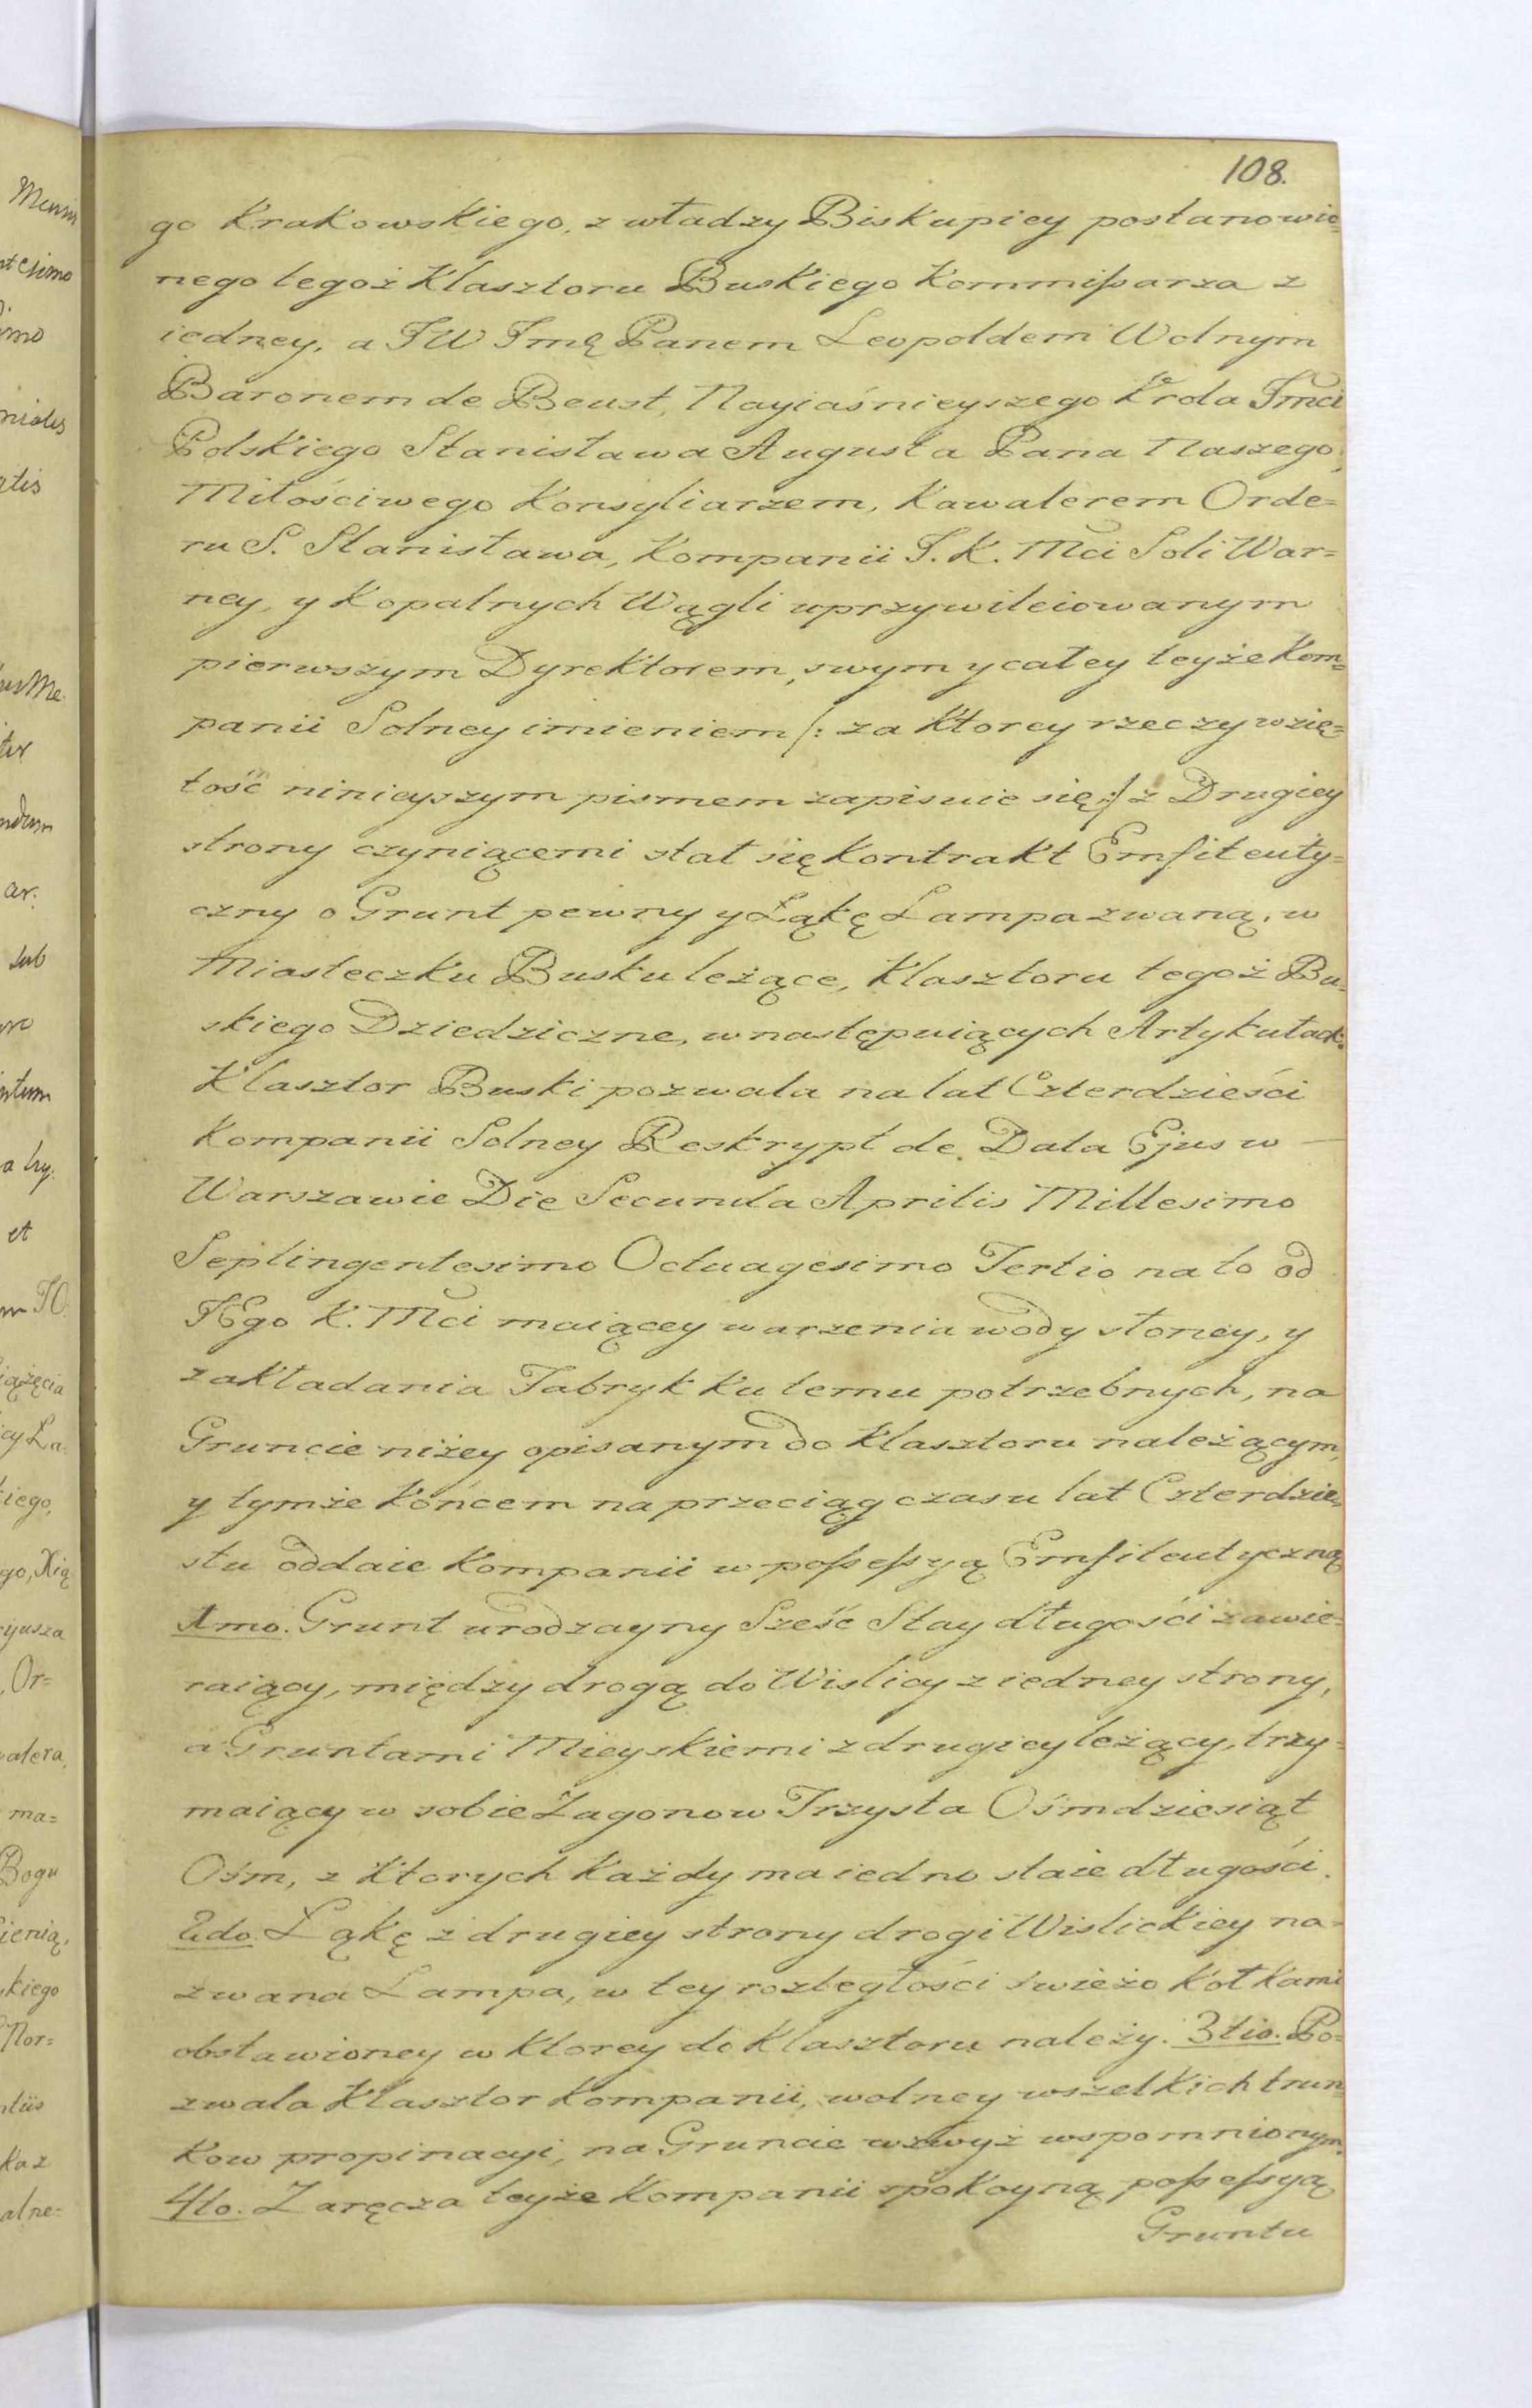 108.
go Krakowskiego, z władzy Biskupiey postanowio=
nego tegoż Klasztoru Buskiego Kommißarza z
iedney, a JW Jmę Panem Leopoldem Wolnym
Baronem de Beust, Nayiaśnieyszego Krola Jmci
Polskiego Stanisława Augusta Pana Naszego
Miłościwego Konsyliarzem, Kawalerem Orde=
ru S. Stanisława, Kompanii J. K. Mci Soli War=
ney, y Kopalnych Wągli uprzywileiowanym
pierwszym Dyrektorem, swym y całey teyże Kom=
panii Solney imieniem /: za ktorey rzeczy wzię=
tość ninieyszym pismem zapisuie się :/ z Drugiey
strony czyniącemi stał się Kontrakt Emfiteuty=
czny o Grunt pewny y Łąkę Lampa zwaną, w
Miasteczku Busku leżące, Klasztoru tegoż Bu=
skiego Dziedziczne, w następuiących Artykułach.
Klasztor Buski pozwala na lat Czterdzieści
Kompanii Solney Reskrypt de Data Ejus w
Warszawie Die Secunda Aprilis Millesimo
Septingentesimo Octuagesimo Tertio na to od
JEgo K. Mci maiącey warzenia wody słoney, y
zakładania Fabryk ku temu potrzebnych, na
Gruncie niżey opisanym do Klasztoru należącym,
y tymże końcem na przeciąg czasu lat Czterdzie=
stu oddaie Kompanii w poßeßyą Emfiteutyczną
1mo. Grunt urodzayny Sześć Stay długości zawie=
raiący, między drogą do Wislicy z iedney strony,
a Gruntami Mieyskiemi z drugiey leżący, trzy=
maiący w sobie Zagonow Trzysta Ośmdziesiąt
Ośm, z ktorych każdy ma iedno staie długości.
2do. Łąkę z drugiey strony drogi Wislickiey na=
zwana Lampa, w tey rozległości świeżo kołkami
obstawioney w ktorey do Klasztoru należy. 3tio. Po=
zwala Klasztor Kompanii, wolney wszelkich trun=
kow propinacyi, na Gruncie wzwyż wspomnionym.
4to. Zaręcza teyże Kompanii spokoyną poßeßyą
Gruntu